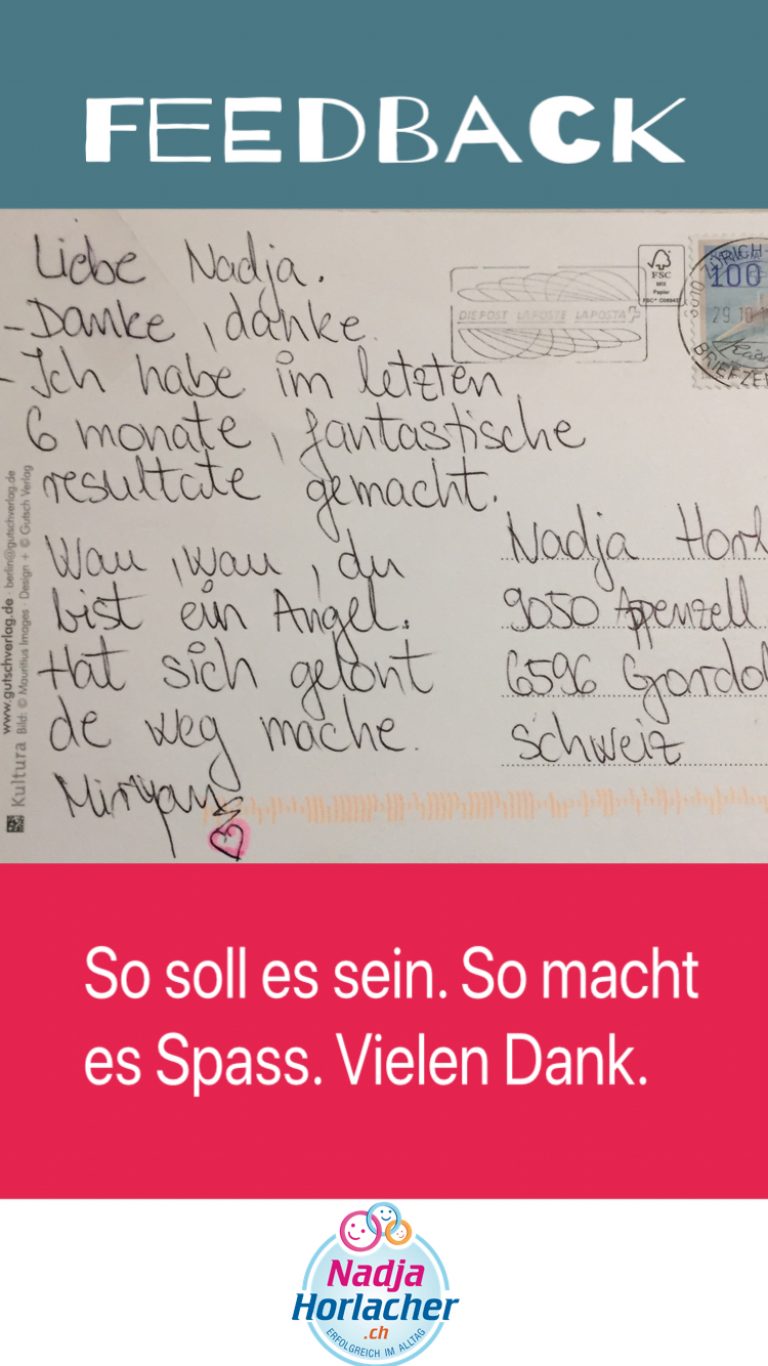 FEEDBACK
Liebe Nadja.
- Danke, danke.
- Ich habe im letzten
6 monate, fantastische
resultate gemacht.
Wau, wau, du
bist ein Angel.
Hat sich gelont
de weg mache.
Miryan
FSC
MIX
Papier
DIE POST LA POSTE LA POSTA
100
29.10.
BRIEFZE
Nadja Horl
9050 Appenzell
6596 Gordol
Schweiz
www.gutschverlag.de · berlin@gutschverlag.de
Kultura Bild: © Mauritius Images · Design + © Gutsch Verlag
So soll es sein. So macht
es Spass. Vielen Dank.
Nadja
Horlacher
.ch
ERFOLGREICH IM ALLTAG